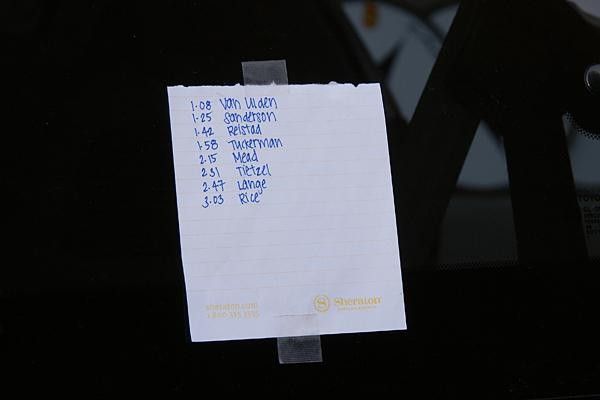 1.08 Van Ulden
1.25 Sanderson
1.42 Relstad
1.58 Tuckerman
2.15 Mead
2.31 Tietzel
2.47 Lange
3.03 Rice
sheraton.com
S Sheraton
TOYO